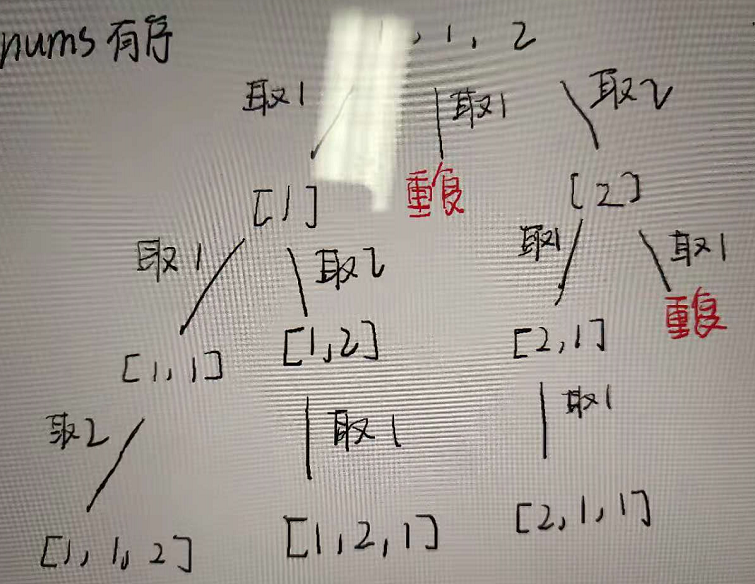 nums 有序
1, 1, 2
取1 取1 取2
[1] 重复 [2]
取1 取2 取1 取1
重复
[1,1] [1,2] [2,1]
取2 取1 取1
[1,1,2] [1,2,1] [2,1,1]